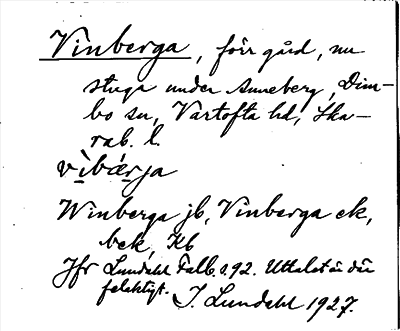 Vinberga, förr gård, nu
stuga under Anneberg, Dim-
bo sn, Vartofta hd, Ska-
rab. l.
vìbær̀ja
Winberga jb, Vinberga ek,
bek, Kb
Jfr Lundahl Falb. s. 92. Uttalet är där
felaktigt.
I. Lundahl 1927.